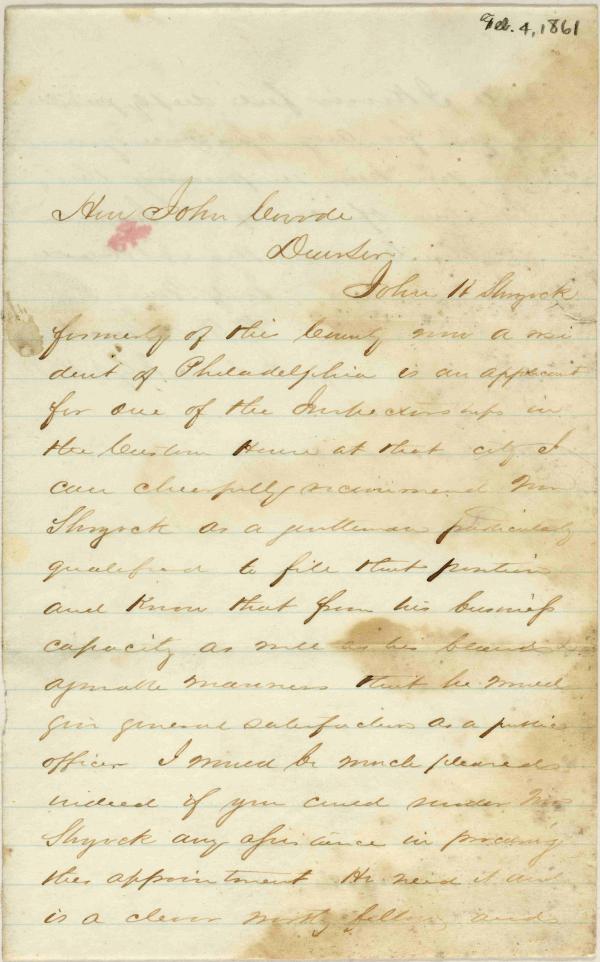 Feb. 4, 1861
Hon John Covode
Dear Sir
John H Shryock
formerly of this County now a resi
dent of Philadelphia is an applicant
for one of the Inspectorships in
the Custom House at that city I
can cheerfully recommend Mr
Shryock as a gentleman particularly
qualified to fill that position
and Know that from his business
capacity as well as his bland &
amable manners that he would
give general satisfaction as a public
officer I would be much pleased
indeed if you could render Mr
Shryock any assistance in procuring
this appointment He need it and
is a clever worthy fellow and